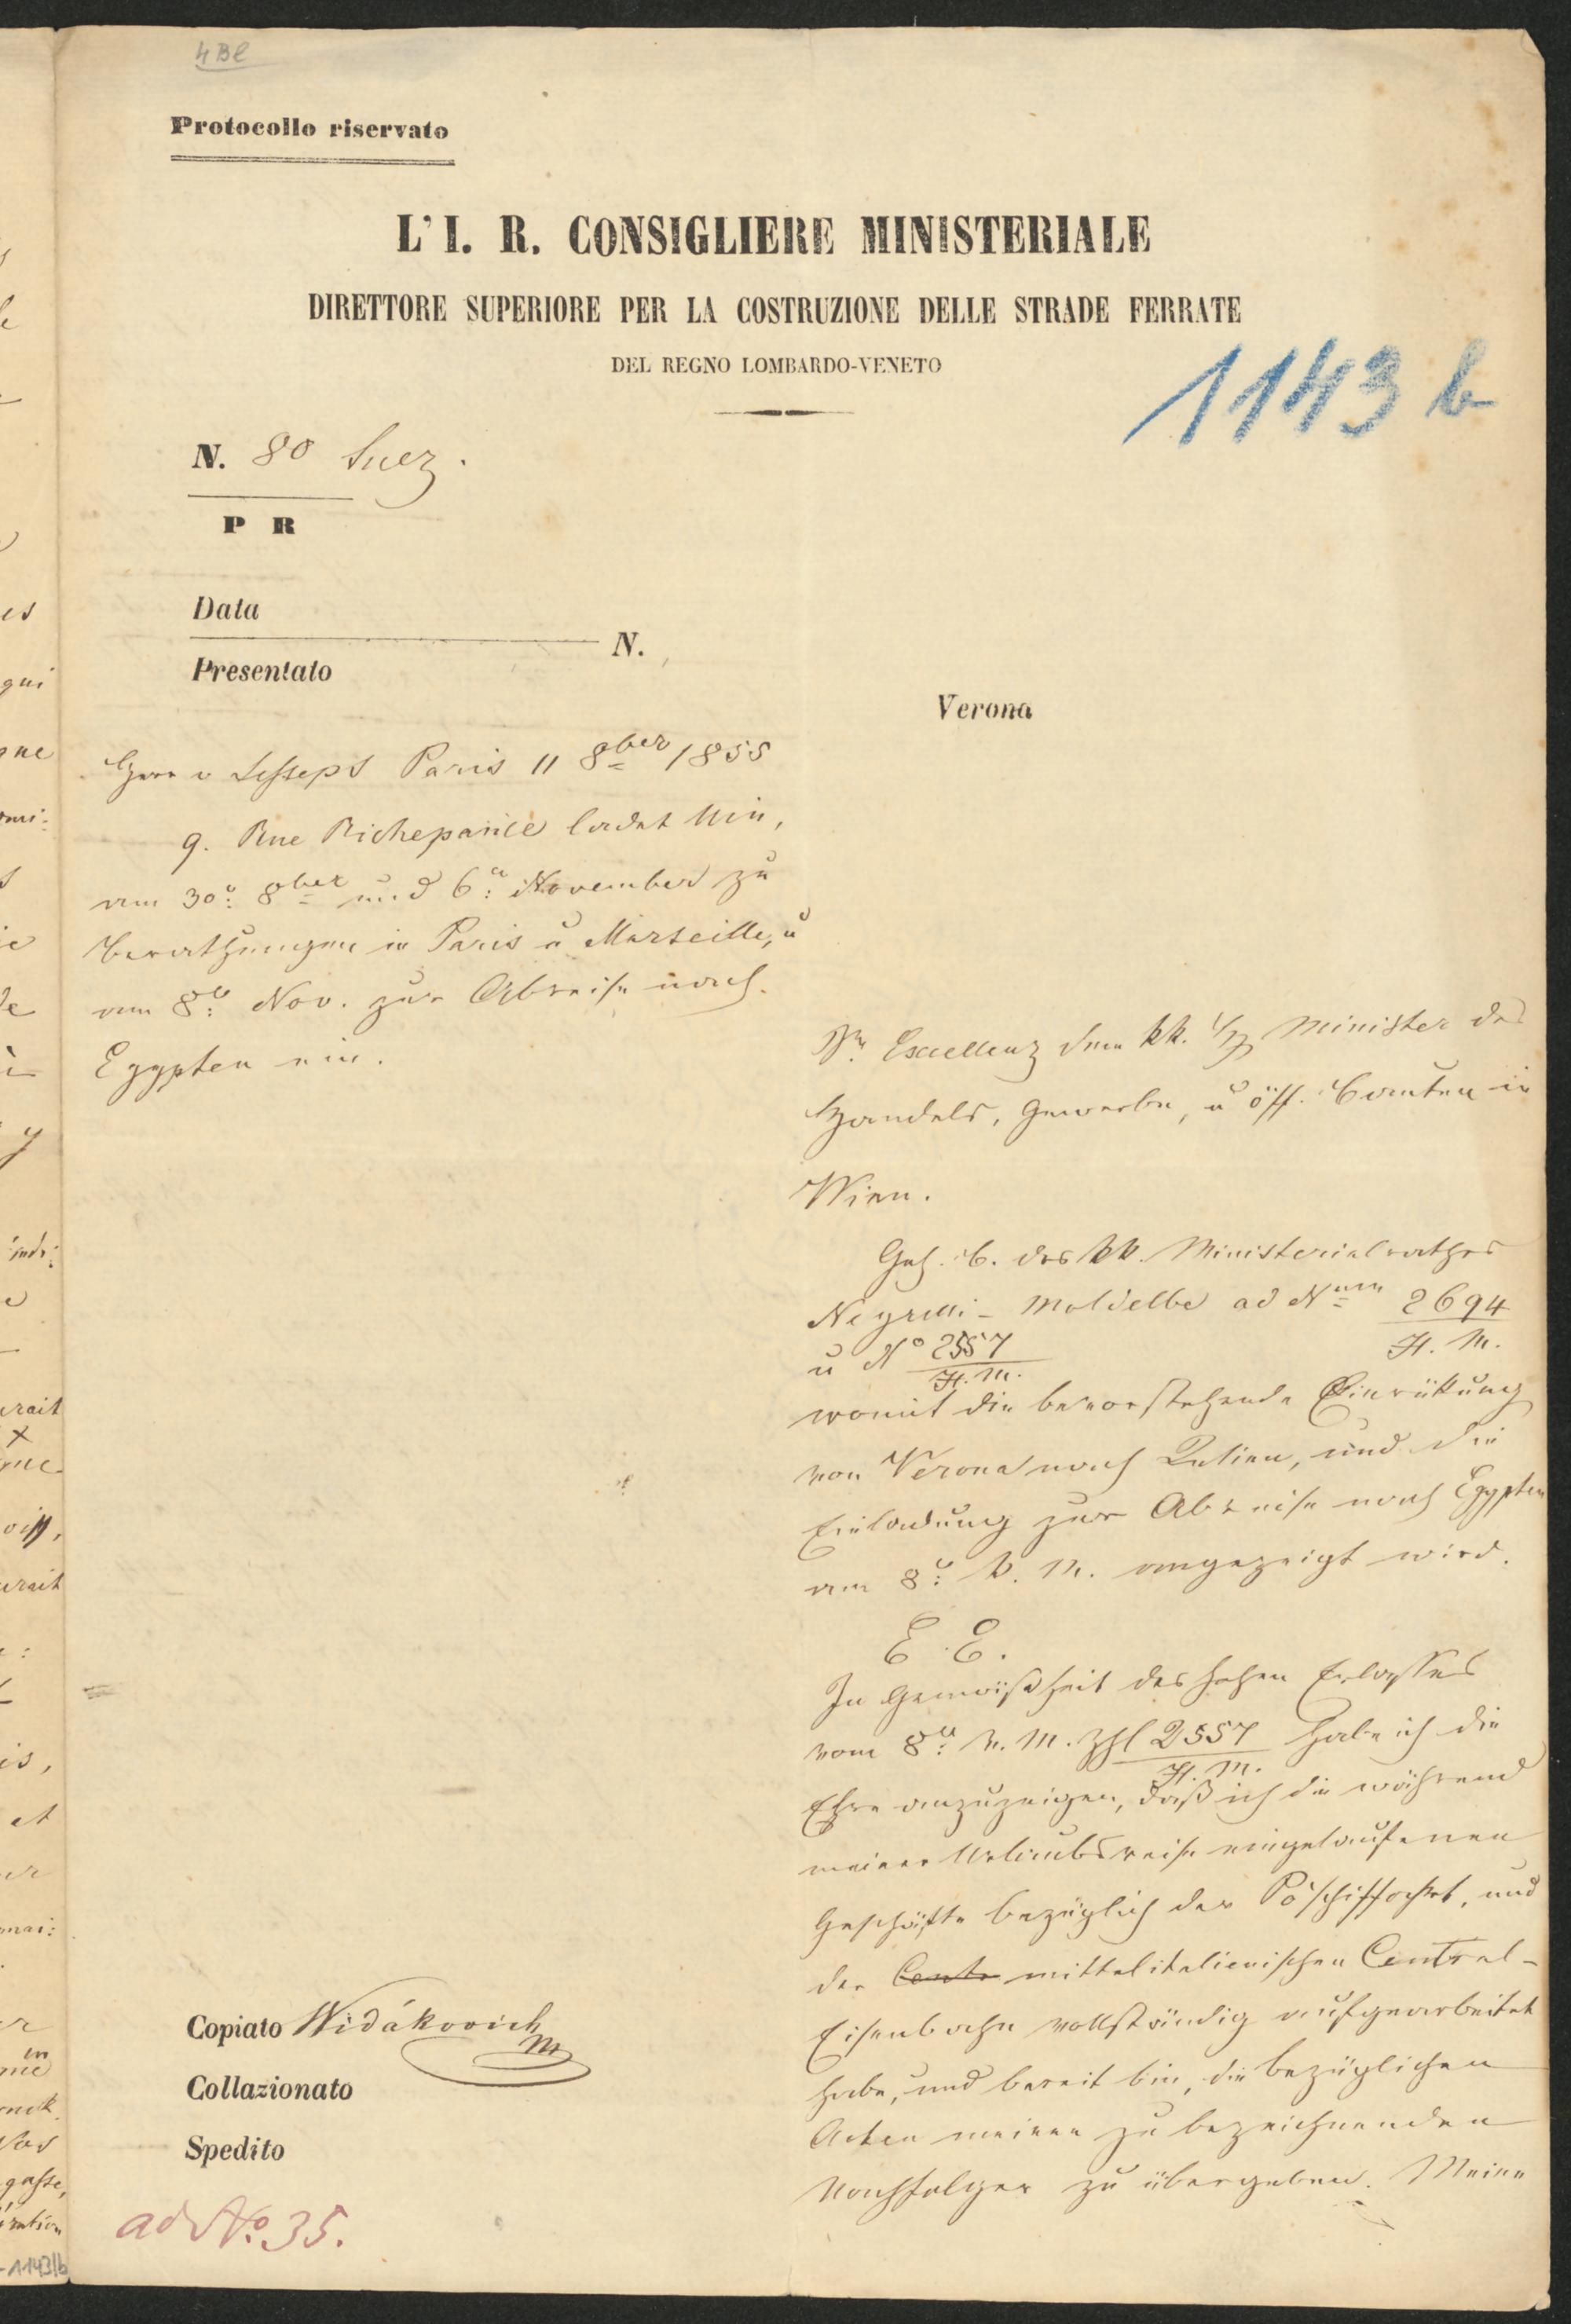 4 Bl
Protocollo riservato
L' I. R. CONSIGLIERE MINISTERIALE
DIRETTORE SUPERIORE PER LA COSTRUZIONE DELLE STRADE FERRATE
DEL REGNO LOMBARDO-VENETO
1143 b
N. 80 Suez.
P R
Data
N.
Presentato
Verona
Herr v Lesseps Paris 11 8ber 1855
9. Rue Richepance ladet
am 30n: 8ber und 6n: November zu
Berathungen in Paris u Marseille, u
am 8n: Nov. zur Abreise nach
Egypten ein.
Sr. Excellenz dem kk. Minister des
Handels, Gewerbe, u öff. Bauten in
Wien.
Geh. B. des kk. Ministerialrathes
Negrelli-Moldelbe ad Num 2694
H. M.
u No 2557
H. M.
womit die bevorstehende Einrükung
von Verona nach und die
Einladung zur Abreise nach Egypten
am 8n: k. M. angezeigt wird.
E. E.
In Gemäßheit des hohen Erlasses
vom 8n: v. M. Zhl 2557 habe ich die
H. M.
Ehre anzuzeigen, daß ich die während
meiner Urlaubsreise eingelaufenen
Geschäfte bezüglich der Poschiffahrt, und
der Centr mittelitalienischen Central-
Eisenbahn vollständig aufgearbeitet
habe, und bereit bin, die bezüglichen
Acten meinem zu bezeichnenden
Nachfolger zu übergeben. Meine
Copiato Widákovich
Collazionato
Spedito
ad No. 35.
qui
que
omi:
de
y
urait
x
oiss,
urait
is,
et
er
mai:
me
in
gasse,
iration
-1143/b